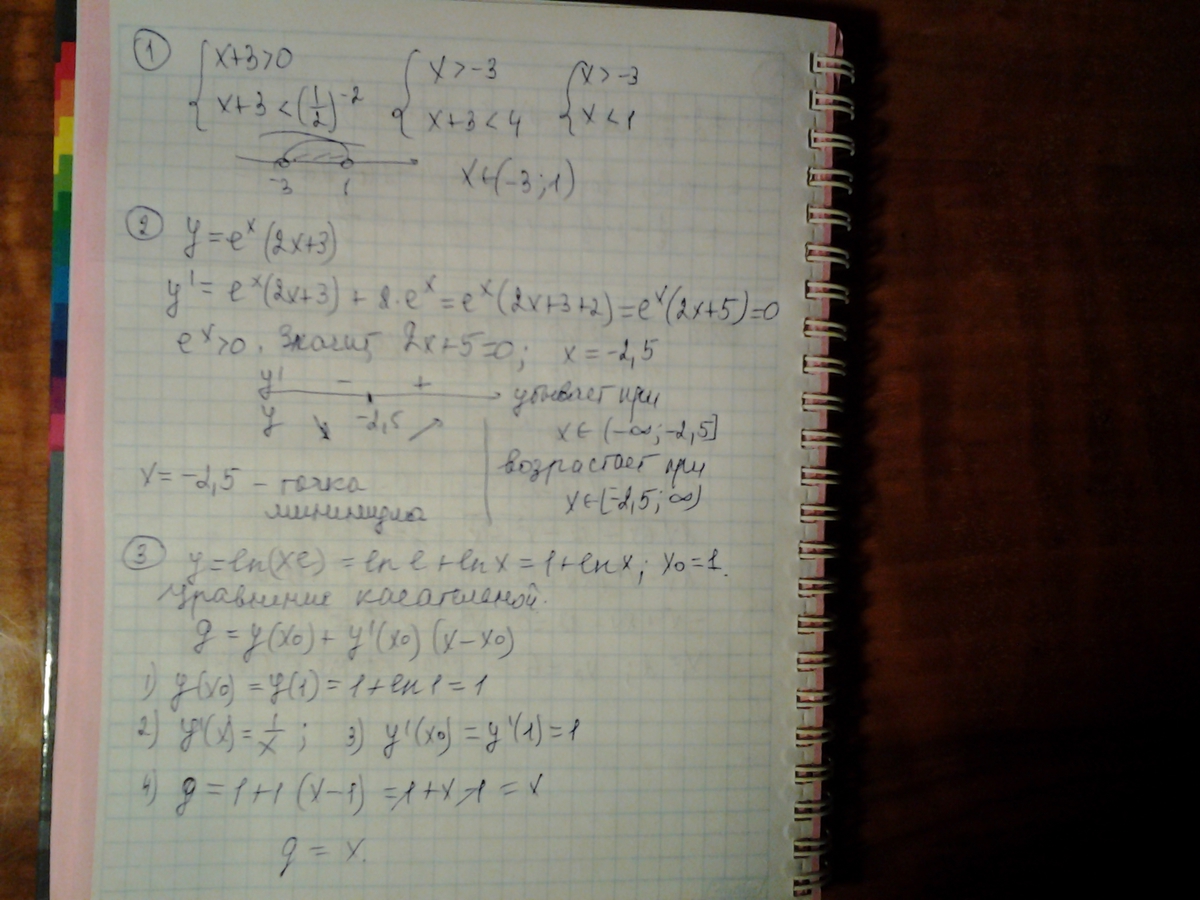 ① { x+3>0 { x>-3 { x>-3
x+3<(1/2)^-2 x+3<4 x<1
-3 1 x∈(-3;1)
② y=e^x(2x+3)
y'=e^x(2x+3)+2·e^x=e^x(2x+3+2)=e^x(2x+5)=0
e^x>0. Значит, 2x+5=0; x=-2,5
y' - + убывает при
y ↘ -2,5 ↗ x∈(-∞;-2,5]
возрастает при
x=-2,5 - точка x∈[-2,5;∞)
минимума
③ y=ln(xe)=ln e+ln x=1+ln x; x0=1.
Уравнение касательной.
g=y(x0)+y'(x0)(x-x0)
1) y(x0)=y(1)=1+ln1=1
2) y'(x)=1/x; 3) y'(x0)=y'(1)=1
4) g=1+1(x-1)=1+x-1=x
g=x.